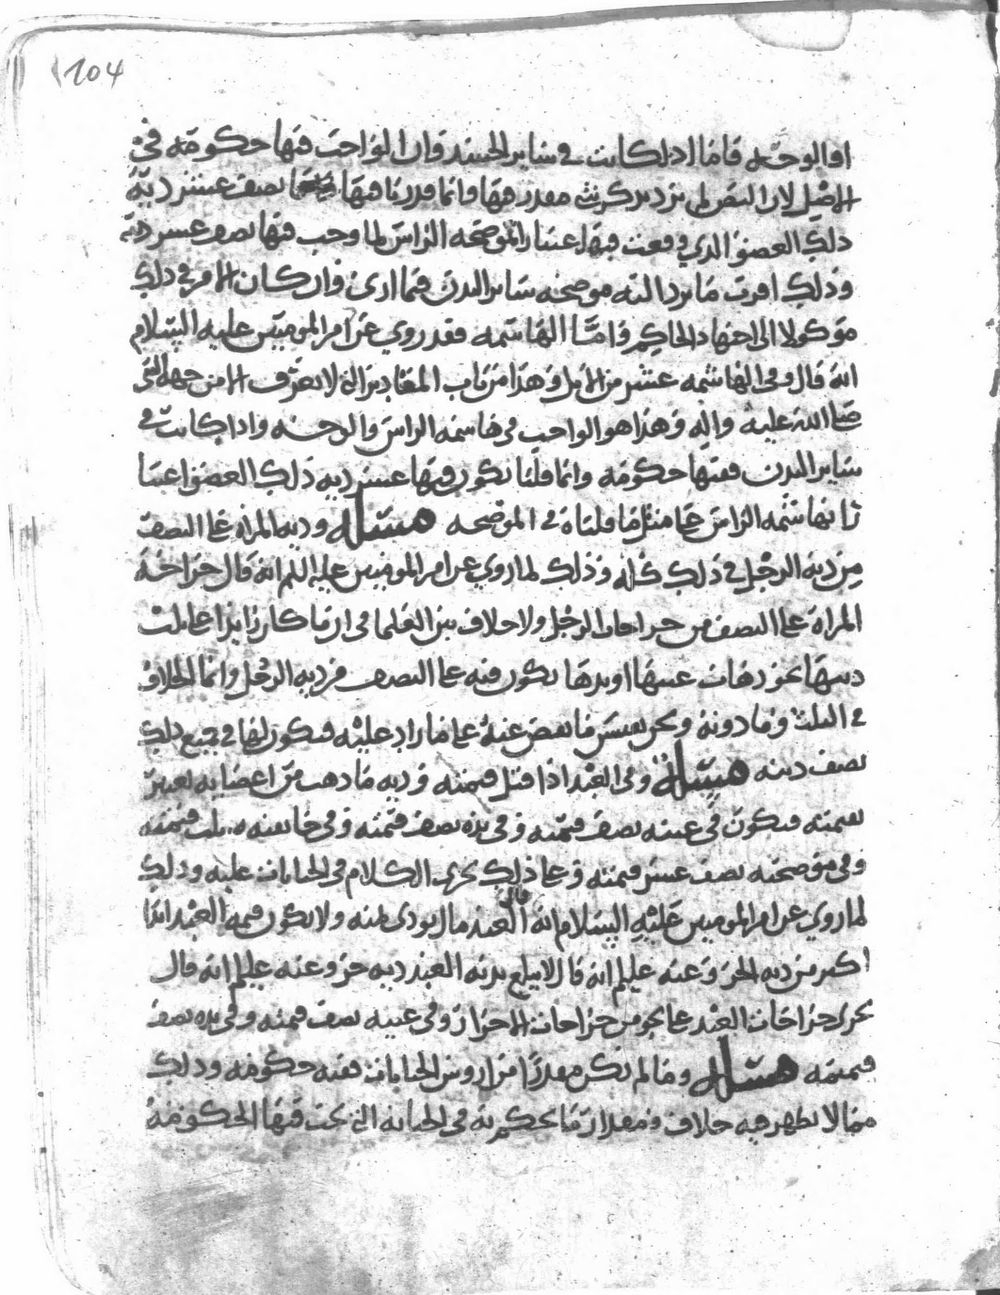 104
او الوجه فاما اذا كانت في ساير الجسد فان الواجب فيها حكومة في
الاصل لان النص لم يرد بذكر شي مقدر فيها وانما قدرنا فيها نصف عشر دية
ذلك العضو الذي وقعت فيها اعتبارا بموضحة الراس لما وجب فيها نصف عشر دية
وذلك اقرب ما يرد اليه موضحة ساير البدن فيما ارى وان كان الامر في ذلك
موكولا الى اجتهاد الحاكم واما الهاشمة فقد روي عن امير المومنين عليه السلام
انه قال وفي الهاشمة عشر من الابل وهذا من باب المقادير التي لا تعرف الا من جهة النبي
صلى الله عليه واله وهذا هو الواجب في هاشمة الراس والوجه واذا كانت في
ساير البدن ففيها حكومة وانما قلنا يكون فيها عشر دية ذلك العضو اعتبا
را بهاشمة الراس على مثل ما قلناه في الموضحة مسئلة ودية المراه على النصف
من دية الرجل في ذلك كله وذلك لما روي عن امير المومنين عليه السلم انه قال جراحة
المراة على النصف من جراحات الرجل ولا خلاف بين العلما في ان ما كان زايدا على ثلث
ديتها نحو ذهاب عينها او يدها يكون فيه على النصف من دية الرجل وانما الخلاف
في الثلث وما دونه ونحن نقيس ما نقص عنه على ما زاد عليه فيكون لها في جميع ذلك
نصف ديته مسئلة وفي العبد اذا قتل قيمته ودية ما ذهب من اعضايه تعتبر
بقيمته فيكون في عينه نصف قيمته وفي يده نصف قيمته وفي جايفته ثلث قيمته
وفي موضحته نصف عشر قيمته وعلى ذلك يجري الكلام في الجنايات عليه وذلك
لما روي عن امير المومنين عليه السلام انه قال العبد مال يودى ثمنه ولا تكون قيمة العبد ابدا
اكثر من دية الحر وعنه عليلم انه قال لا يبلغ بدية العبد دية حر وعنه عليلم انه قال
تجري جراحات العبد على نحو من جراحات الاحرار وفي عينه نصف قيمته وفي يده نصف
قيمته مسئلة وما لم يكن مقدرا من اروش الجنايات ففيه حكومة وذلك
مما لا يظهر فيه خلاف ومقدار ما يحكم به في الجناية التي تجب فيها الحكومة